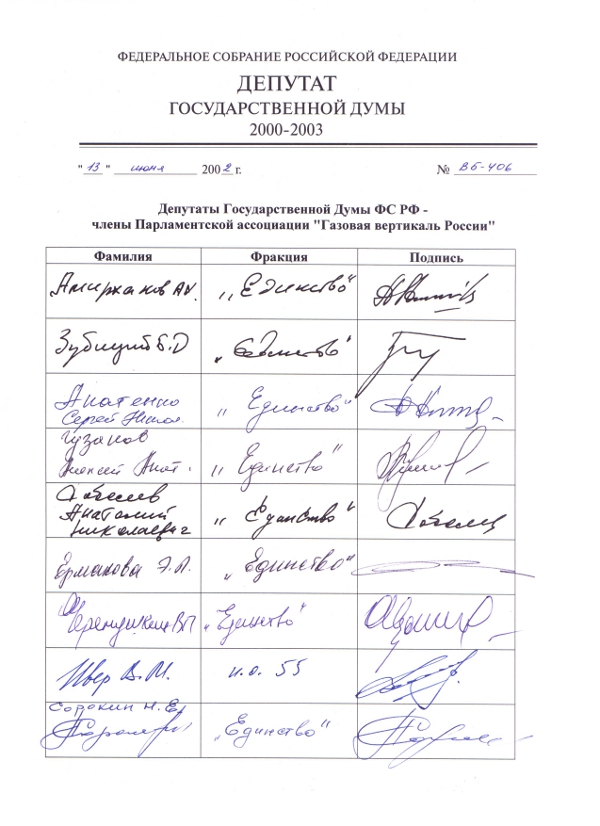 ФЕДЕРАЛЬНОЕ СОБРАНИЕ РОССИЙСКОЙ ФЕДЕРАЦИИ
ДЕПУТАТ
ГОСУДАРСТВЕННОЙ ДУМЫ
2000-2003
"13" июня 2002 г. № ВБ-406
Депутаты Государственной Думы ФС РФ -
члены Парламентской ассоциации "Газовая вертикаль России"
Фамилия Фракция Подпись
Амирханов А.И. „Единство"
Зубицкий Б.Д „Единство"
Апатенко
Сергей Никол. „Единство"
Гузанов
Алексей Анат. „Единство"
Анатолий
Николаевич „Единство"
Ермакова Э.Л. „Единство"
„Единство"
Ивер В.М. н.о. 55
Сорокин Н.Е.
„Единство"